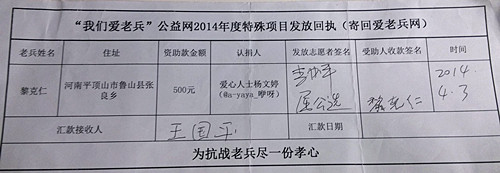 “我们爱老兵”公益网2014年度特殊项目发放回执（寄回爱老兵网）
老兵姓名 住址 资助款金额 认捐人 发放志愿者签名 受助人收款签名 时间
黎克仁 河南平顶山市鲁山县张良乡 500元 爱心人士杨文婷（@a-yaya_咿呀） 屈公选 黎克仁 2014.4.3
汇款接收人 王国平 汇款日期
为抗战老兵尽一份孝心